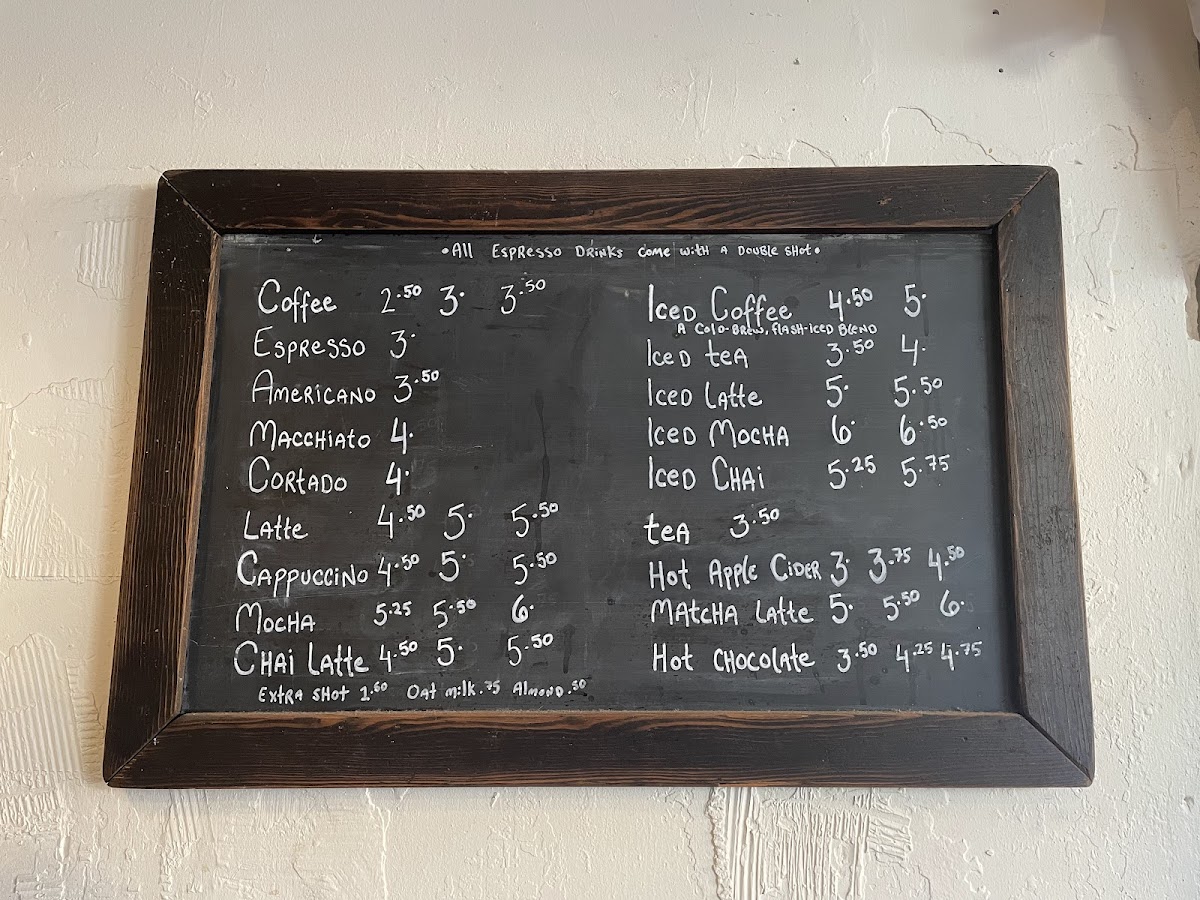 •All Espresso Drinks come with a double shot•
Coffee 2.50 3. 3.50
Espresso 3.
Americano 3.50
Macchiato 4.
Cortado 4.
Latte 4.50 5. 5.50
Cappuccino 4.50 5. 5.50
Mocha 5.25 5.50 6.
Chai Latte 4.50 5. 5.50
Extra shot 1.60 Oat milk .75 Almond .50
Iced Coffee 4.50 5.
A Cold-Brew, flash-iced Blend
Iced tea 3.50 4.
Iced Latte 5. 5.50
Iced Mocha 6. 6.50
Iced Chai 5.25 5.75
tea 3.50
Hot Apple Cider 3. 3.75 4.50
Matcha Latte 5. 5.50 6.
Hot Chocolate 3.50 4.25 4.75